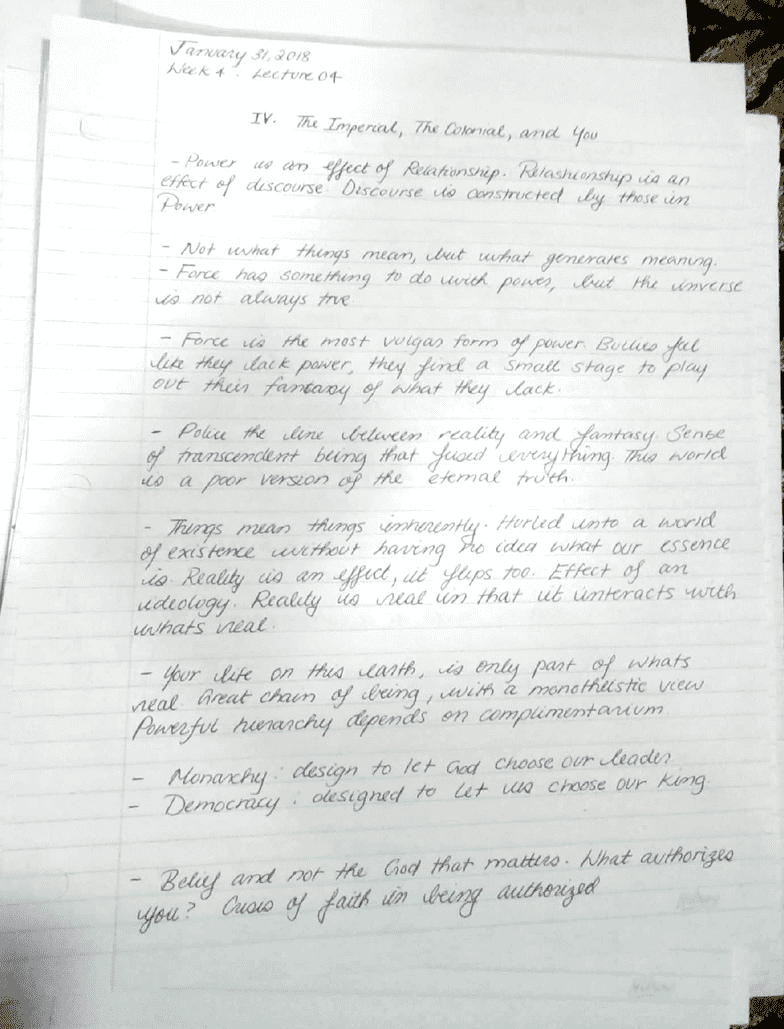 January 31, 2018
Week 4. Lecture 04
IV. The Imperial, The Colonial, and You
- Power is an effect of Relationship. Relashionship is an
effect of discourse. Discourse is constructed by those in
Power
- Not what things mean, but what generates meaning.
- Force has something to do with power, but the inverse
is not always true
- Force is the most vulgar form of power. Bullies feel
like they lack power, they find a small stage to play
out their fantasy of what they lack.
- Police the line between reality and fantasy. Sense
of transcendent being that fused everything. This world
is a poor version of the eternal truth.
- Things mean things inherently. Hurled unto a world
of existence without having no idea what our essence
is. Reality is an effect, it flips too. Effect of an
ideology. Reality is real in that it interacts with
whats real.
- Your life on this earth, is only part of whats
real. Great chain of being, with a monotheistic view
Powerful hierarchy depends on complimentarium
- Monarchy: design to let God choose our leader
- Democracy: designed to let us choose our King.
- Belief and not the God that matters. What authorizes
you? Crisis of faith in being authorized